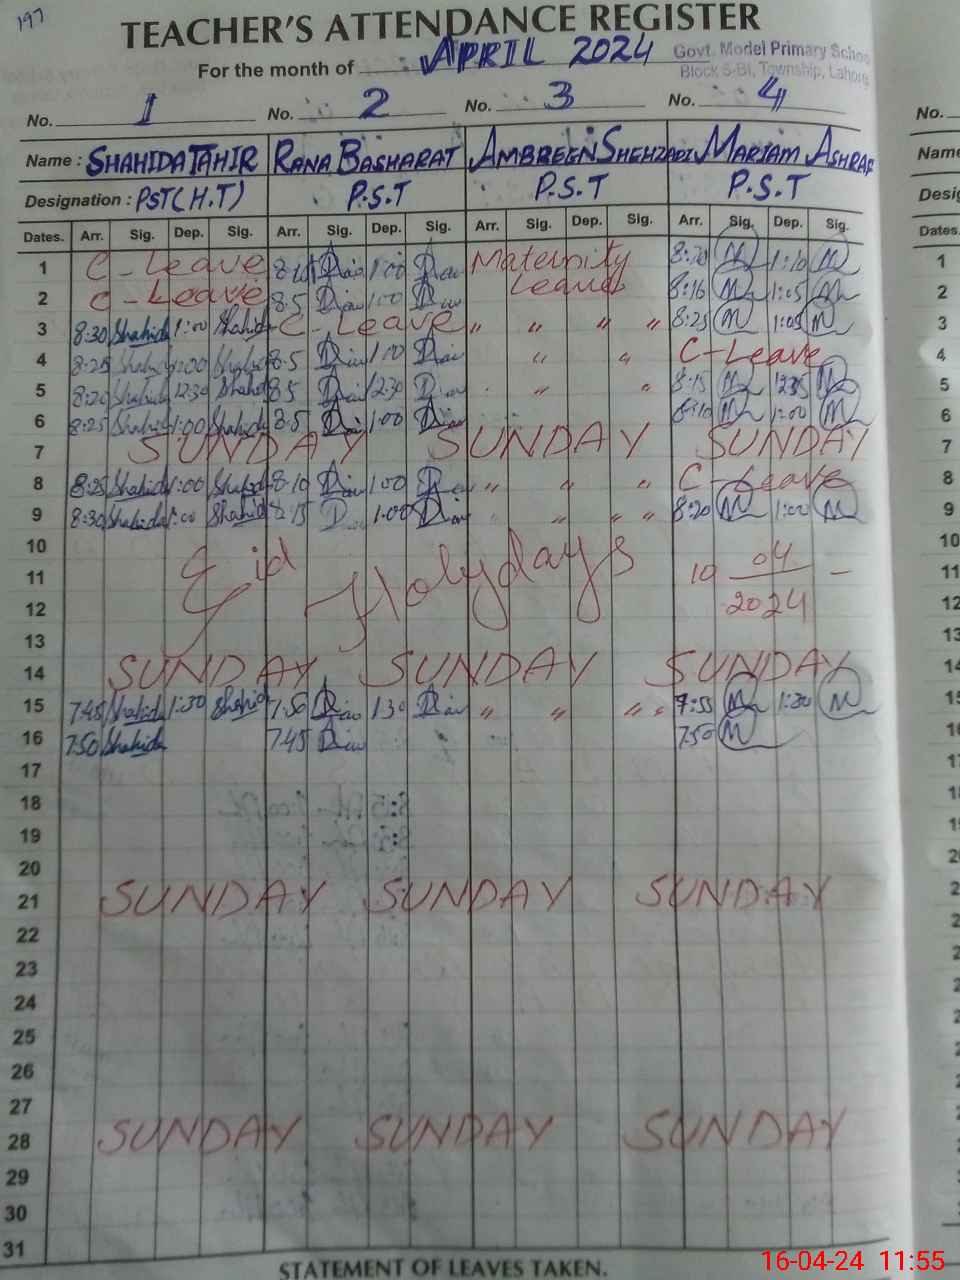 197
TEACHER'S ATTENDANCE REGISTER
For the month of APRIL 2024
Govt. Model Primary Schoo
Block 5-BI, Township, Lahore
No. 1 No. 2 No. 3 No. 4 No.
Name : SHAHIDA TAHIR RANA BASHARAT AMBREEN SHEHZADI MARIAM ASHRAF Name
Designation : PST (H.T) P.S.T P.S.T P.S.T Desig
Dates. Arr. Sig. Dep. Sig. Arr. Sig. Dep. Sig. Arr. Sig. Dep. Sig. Arr. Sig. Dep. Sig. Dates.
1 C-Leave 8-10 1:00 Maternity 8:20 M 1:10 M 1
2 C-Leave 8.5 1:00 Leave 8:16 M 1:05 M 2
3 8:30 Shahida 1:00 Shahida C-Leave " " " " 8:25 M 1:05 M 3
4 8:25 Shahida 1:00 Shahida 8.5 1:00 " " C-Leave 4
5 8:20 Shahida 12:30 Shahida 8.5 12:30 " " 8:15 M 12:35 M 5
6 8:25 Shahida 1:00 Shahida 8.5 1:00 8:10 M 1:00 M 6
7 SUNDAY SUNDAY SUNDAY 7
8 8:25 Shahida 1:00 Shahida 8-10 1:00 " " " C-Leave 8
9 8:30 Shahida 1:00 Shahida 8-15 1:00 " " " " 8:20 M 1:00 M 9
10 10
11 Eid Holydays 10 04/2024 – 11
12 12
13 13
14 SUNDAY SUNDAY SUNDAY 14
15 7:45 Shahida 1:30 Shahida 7:50 1:30 " " " " 7:55 M 1:30 M 15
16 7:50 Shahida 7:45 7:50 M 16
17
18
19
20
21 SUNDAY SUNDAY SUNDAY
22
23
24
25
26
27
28 SUNDAY SUNDAY SUNDAY
29
30
31
STATEMENT OF LEAVES TAKEN.
16-04-24 11:55